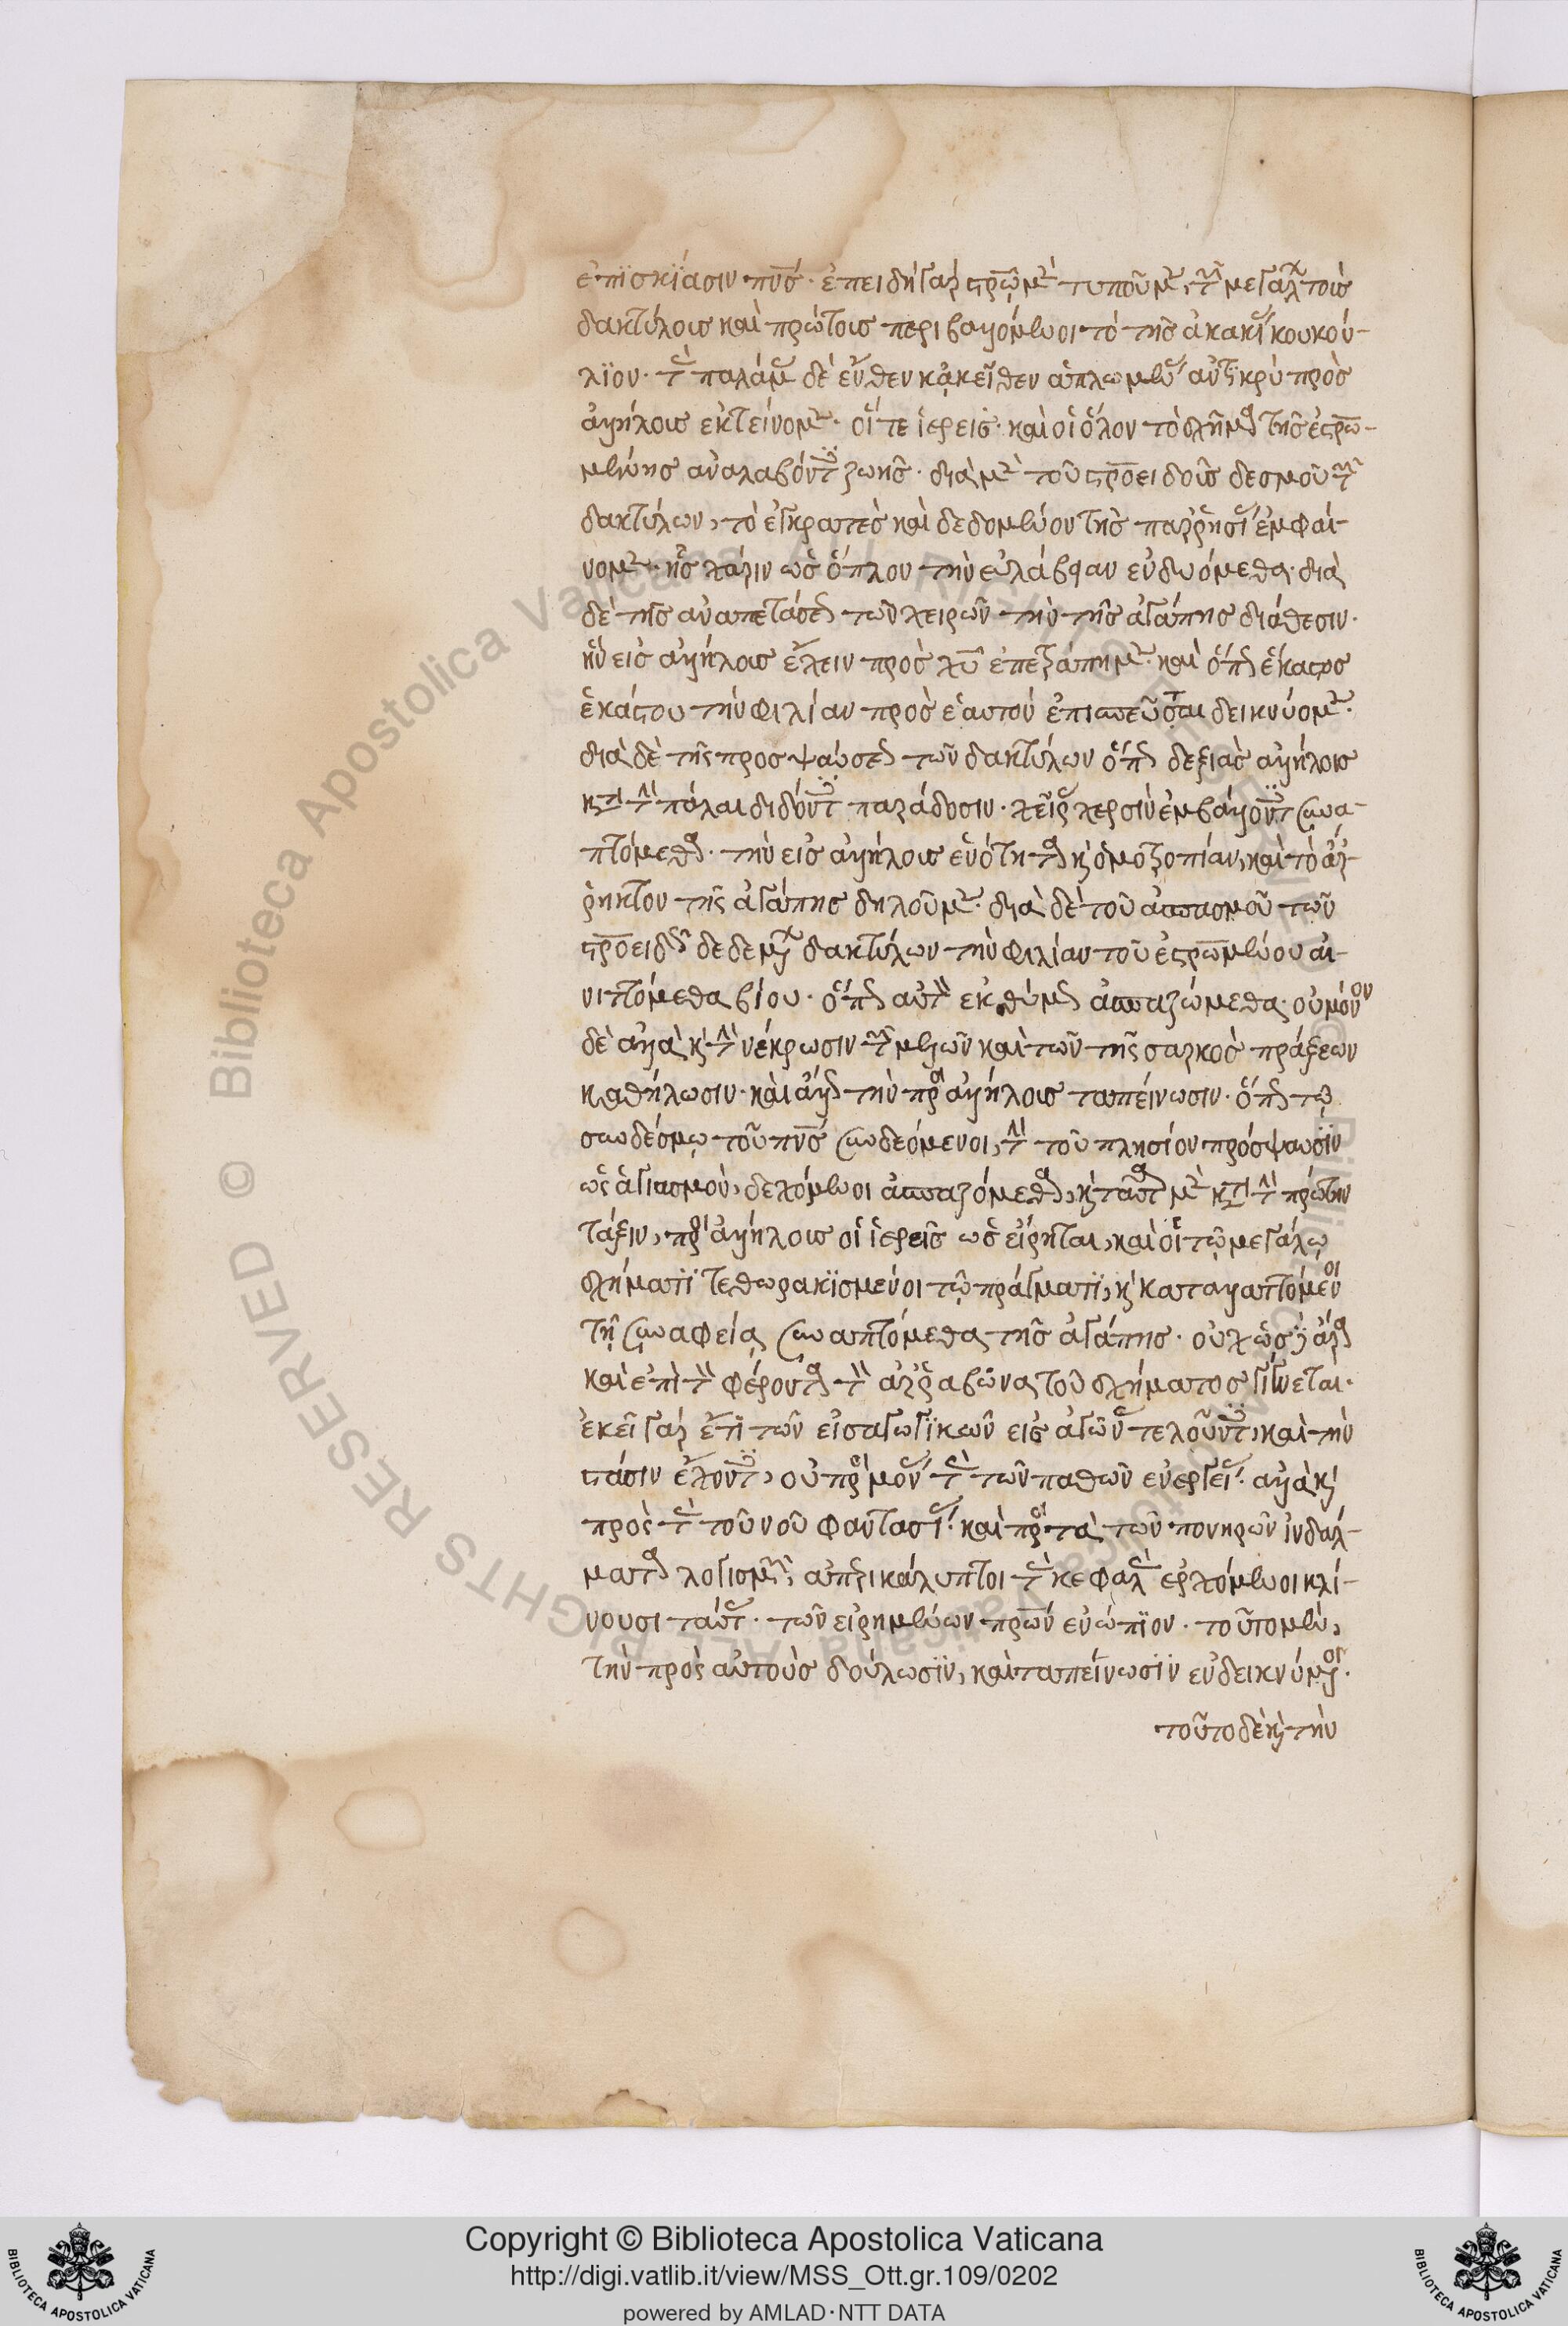 ἐπϊσκΐασιν πνς· ἐπειδὴ γὰρ στρον μὲν τυποῦμεν, τῶν μεγάλων τοῖς
δακτύλοις καὶ πρώτοις περιβαλλόμενοι τὸ τῆς ἀκακίας κουκού-
λϊον· τὰς παλάμας δὲ ἔνθεν κἀκεῖθεν ἁπλωμένας ἀντικρὺ πρὸς
ἀλλήλοις ἐκτείνομεν· οἵ τε ἱερεῖς· καὶ οἱ ὅλον τὸ σχῆμα τῆς ἐστρω-
μένης ἀναλαβόντες ζωῆς· διὰ μὲν τοῦ στροειδοῦς δεσμοῦ τῶν
δακτύλων, τὸ ἐγκρατὲς καὶ δεδομένον τῆς παρρησίας ἐμφαί-
νομεν· ἧς χάριν ὡς ὅπλον τὴν εὐλάβειαν ἐνδυόμεθα· διὰ
δὲ τῆς ἀναπετάσεως τῶν χειρῶν τὴν τῆς ἀγάπης διάθεσιν·
ἣν εἰς ἀλλήλοις ἔχειν πρὸς χυ ἐπετράπημεν· καὶ ὅπως ἕκαστος
ἑκάστου τὴν φιλίαν πρὸς ἑαυτοῦ ἐπισπεῦσται δεικνύομεν·
διὰ δὲ τῆς προσψαύσεως τῶν δακτύλων ὅπως δεξιὰς ἀλλήλοις
κατὰ τὴν πάλαι διδόντες παράδοσιν· χεῖρας χερσὶν ἐμβαλλόντες συνα-
πτόμεθα· τὴν εἰς ἀλλήλοις ἑνότητα καὶ ὁμοτροπίαν, καὶ τὸ ἄρ-
ρηκτον τῆς ἀγάπης δηλοῦμεν· διὰ δὲ τοῦ ἀσπασμοῦ τῶν
στροειδῶς δεδεμένων δακτύλων τὴν φιλίαν τοῦ ἐστρωμένου αἰ-
νιττόμεθα βίου· ὅπως αὐτὸν ἐκθύμως ἀσπαζώμεθα· οὐ μόνον
δὲ ἀλλὰ καὶ τὴν νέκρωσιν τῶν μελῶν καὶ τῶν τῆς σαρκὸς πράξεων
καθήλωσιν· καὶ ἄλλως τὴν πρὸς ἀλλήλοις ταπείνωσιν· ὅπως τῷ
συνδέσμῳ τοῦ πνς συνδεόμενοι, τὴν τοῦ πλησίον πρόσψαυσϊν
ὡς ἁγιασμὸν, δεχόμενοι ἀσπαζόμεθα, καὶ ταῦτα μὲν κατὰ τὴν πρώτην
τάξιν, πρὸς ἀλλήλοις οἱ ἱερεῖς ὡς εἴρηται, καὶ οἱ τῷ μεγάλῳ
σχήματϊ τεθωρακϊσμένοι τῷ πράγματϊ, καὶ καταλλαττόμενοι
τῇ συναφείᾳ συναπτόμεθα τῆς ἀγάπης· οὐχ ὡσαύτως ἄρα
καὶ ἐπὶ τὸν φέροντα τὸν ἀρραβῶνα τοῦ σχήματος γίνεται·
ἐκεῖ γὰρ ἔτι τῶν εἰσαγωγϊκῶν εἰς ἀγῶνας τελοῦντες, καὶ τὴν
στάσιν ἔχοντες, οὐ πρὸς μόνας τὰς τῶν παθῶν ἐνεργείας· ἀλλὰ καὶ
πρὸς τὰς τοῦ νοῦ φαντασίας· καὶ πρὸς τὰ τῶν πονηρῶν ἰνδάλ-
ματα λογισμῶν, ἀπερικάλυπτοι τὰς κεφαλὰς ἐρχόμενοι κλί-
νουσι ταύτας· τῶν εἰρημένων πρων ἐνώπϊον· τοῦτο μὲν,
τὴν πρὸς αὐτοὺς δούλωσϊν, καὶ ταπείνωσϊν ἐνδεικνύμενοι·
τοῦτο δὲ καὶ τὴν
Copyright © Biblioteca Apostolica Vaticana
http://digi.vatlib.it/view/MSS_Ott.gr.109/0202
powered by AMLAD·NTT DATA
BIBLIOTECA APOSTOLICA VATICANA
BIBLIOTECA APOSTOLICA VATICANA